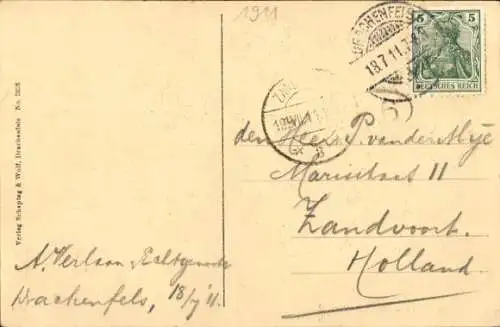 1911
DRACHENFELS
18.7.11.
5 5
DEUTSCHES REICH
Verlag Schaping & Wolf, Drachenfels No.
den Heer P. van der Mije
Marisstraat 11
Zandvoort.
Holland.
A. Verlaan Echtgenoote
Drachenfels, 18/7 '11.